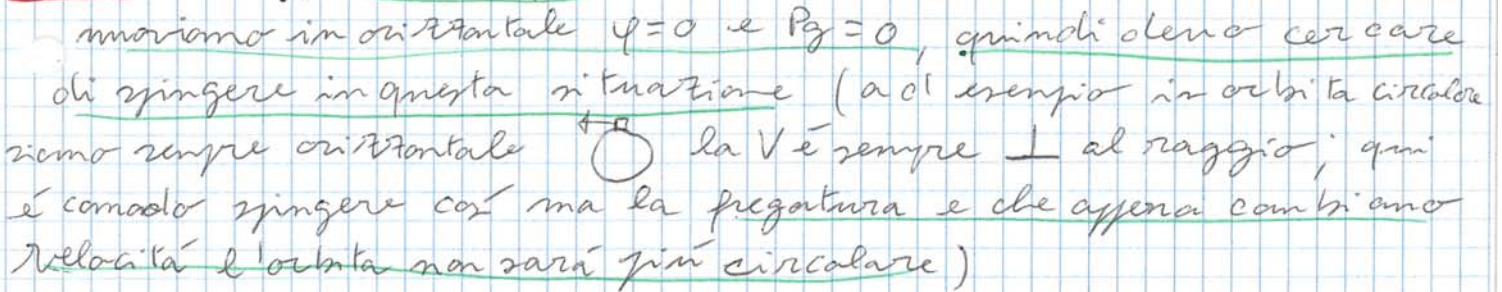 muoviamo in orizzontale φ=0 e Pg=0, quindi devo cercare
di spingere in questa situazione (ad esempio in orbita circolare
siamo sempre orizzontale la V é sempre ⊥ al raggio; qui
é comodo spingere cosí ma la fregatura e che appena cambiamo
velocitá l'orbita non sará piú circolare)